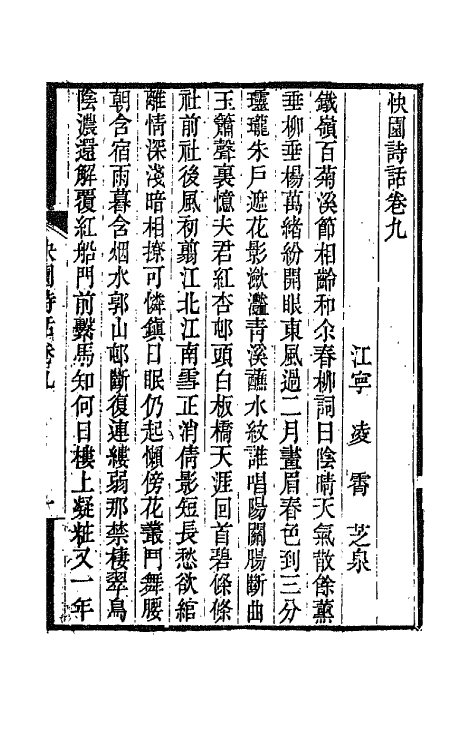 快園詩話卷九
江寧 凌霄 芝泉
鐵嶺百菊溪節相齡和余春柳詞曰陰晴天氣散餘薰
垂柳垂楊萬緒紛開眼東風過二月畫眉春色到三分
瓏瓏朱戶遮花影瀲灩青溪蘸水紋誰唱陽關腸斷曲
玉簫聲裏憶夫君紅杏邨頭白板橋天涯回首碧條條
社前社後風初翦江北江南雪正消倩影短長愁欲綰
離情深淺暗相撩可憐鎮日眠仍起懶傍花叢鬥舞腰
朝含宿雨暮含烟水郭山邨斷復連縷弱那禁棲翠鳥
陰濃還解覆紅船門前繫馬知何日樓上凝粧又一年
快園詩話卷九